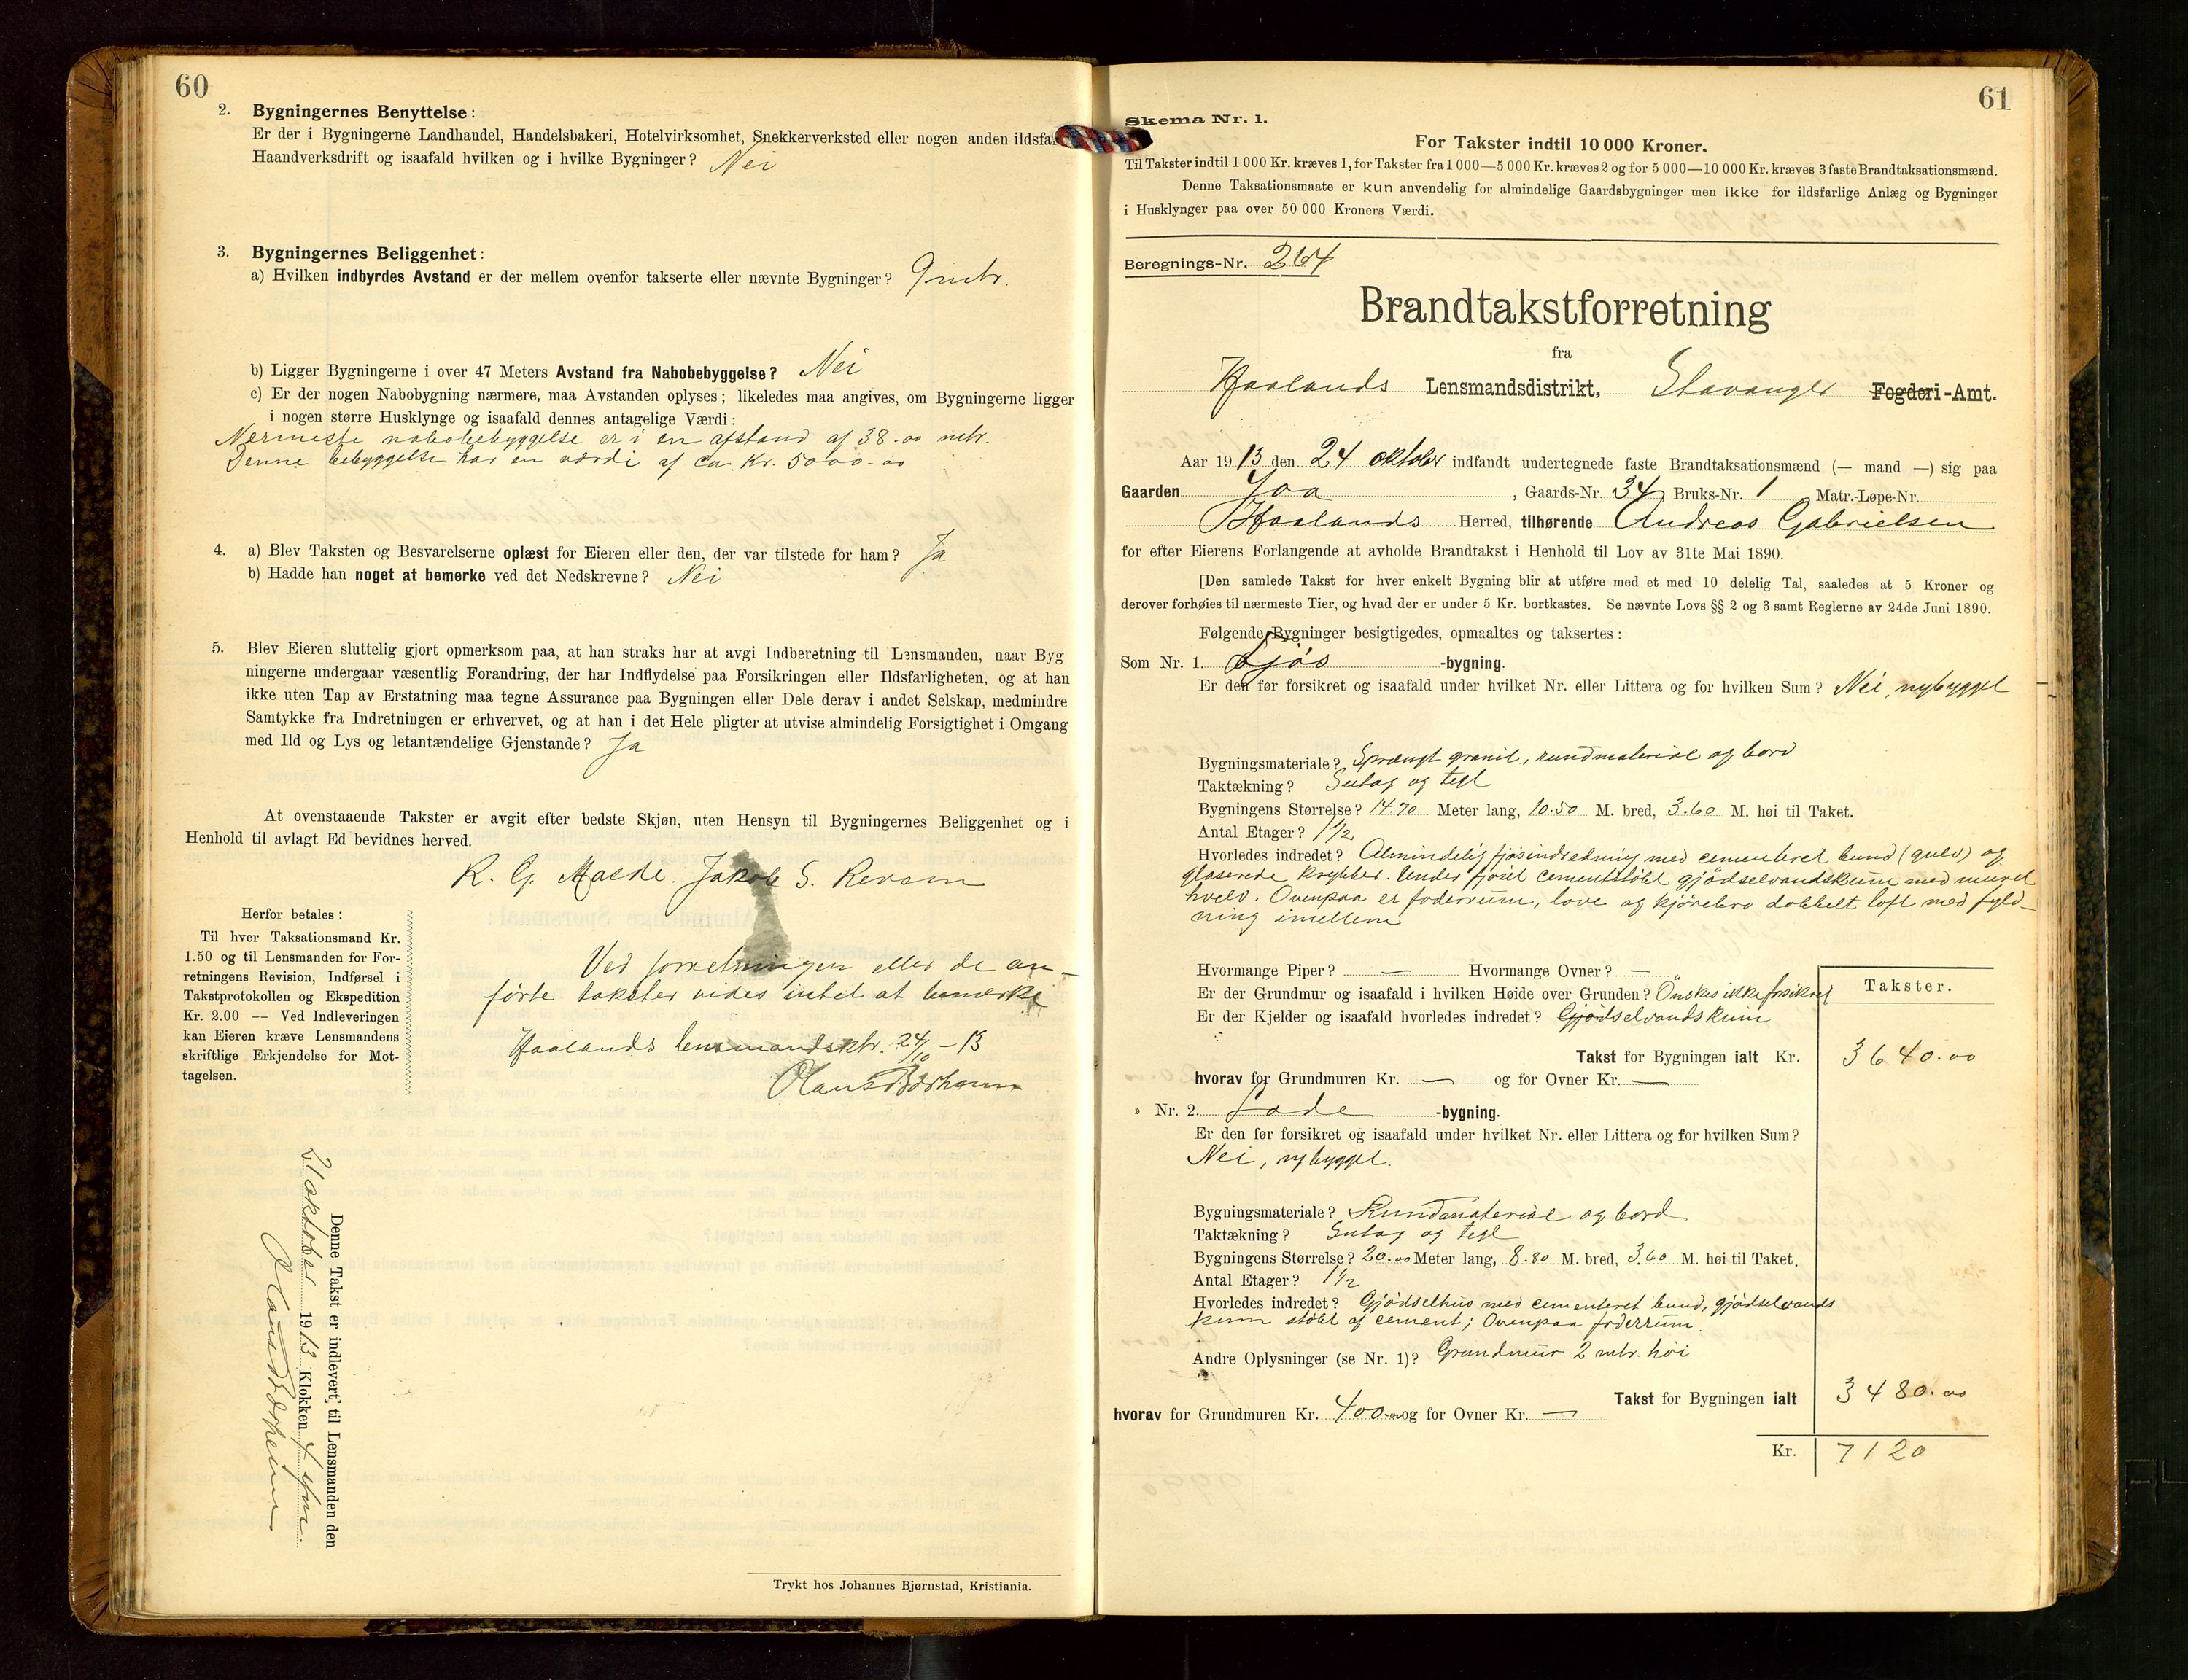 60
2. Bygningernes Benyttelse:
Er der i Bygningerne Landhandel, Handelsbakeri, Hotelvirksomhet, Snekkerverksted eller nogen anden ildsfa
Haandverksdrift og isaafald hvilken og i hvilke Bygninger? Nei
3. Bygningernes Beliggenhet:
a) Hvilken indbyrdes Avstand er der mellem ovenfor takserte eller nævnte Bygninger? 9 mtr.
b) Ligger Bygningerne i over 47 Meters Avstand fra Nabobebyggelse? Nei
c) Er der nogen Nabobygning nærmere, maa Avstanden oplyses; likeledes maa angives, om Bygningerne ligger
i nogen større Husklynge og isaafald dennes antagelige Værdi:
Nermeste nabobebyggelse er i en afstand af 38.00 mtr.
Denne bebyggelse har en værdi af ca. Kr. 5000.00
4. a) Blev Taksten og Besvarelserne oplæst for Eieren eller den, der var tilstede for ham? Ja
b) Hadde han noget at bemerke ved det Nedskrevne? Nei
5. Blev Eieren sluttelig gjort opmerksom paa, at han straks har at avgi Indberetning til Lensmanden, naar Byg
ningerne undergaar væsentlig Forandring, der har Indflydelse paa Forsikringen eller Ildsfarligheten, og at han
ikke uten Tap av Erstatning maa tegne Assurance paa Bygningen eller Dele derav i andet Selskap, medmindre
Samtykke fra Indretningen er erhvervet, og at han i det Hele pligter at utvise almindelig Forsigtighet i Omgang
med Ild og Lys og letantændelige Gjenstande? Ja
At ovenstaaende Takster er avgit efter bedste Skjøn, uten Hensyn til Bygningernes Beliggenhet og i
Henhold til avlagt Ed bevidnes herved.
K. G. Malde. Jakob S. Revem
Herfor betales:
Til hver Taksationsmand Kr.
1.50 og til Lensmanden for For-
retningens Revision, Indførsel i
Takstprotokollen og Ekspedition
Kr. 2.00 — Ved Indleveringen
kan Eieren kræve Lensmandens
skriftlige Erkjendelse for Mot-
tagelsen.
Ved forretningen eller de an-
førte takster vides intet at bemerke
Haalands lensmandsktr. 24/10 - 13
Olaus Børheim
Denne Takst er indlevert til Lensmanden den
24 oktober 1913 Klokken 4 efm.
Olaus Børheim
Trykt hos Johannes Bjørnstad, Kristiania.
61
Skema Nr. 1.
For Takster indtil 10 000 Kroner.
Til Takster indtil 1 000 Kr. kræves 1, for Takster fra 1 000—5 000 Kr. kræves 2 og for 5 000—10 000 Kr. kræves 3 faste Brandtaksationsmænd.
Denne Taksationsmaate er kun anvendelig for almindelige Gaardsbygninger men ikke for ildsfarlige Anlæg og Bygninger
i Husklynger paa over 50 000 Kroners Værdi.
Beregnings-Nr. 264
Brandtakstforretning
fra
Haalands Lensmandsdistrikt, Stavanger Fogderi-Amt.
Aar 1913 den 24 oktober indfandt undertegnede faste Brandtaksationsmænd (— mand —) sig paa
Gaarden Joa, Gaards-Nr. 34 Bruks-Nr. 1 Matr.-Løpe-Nr.
Haalands Herred, tilhørende Andreas Gabrielsen
for efter Eierens Forlangende at avholde Brandtakst i Henhold til Lov av 31te Mai 1890.
[Den samlede Takst for hver enkelt Bygning blir at utføre med et med 10 delelig Tal, saaledes at 5 Kroner og
derover forhøies til nærmeste Tier, og hvad der er under 5 Kr. bortkastes. Se nævnte Lovs §§ 2 og 3 samt Reglerne av 24de Juni 1890.
Følgende Bygninger besigtigedes, opmaaltes og taksertes:
Som Nr. 1. Fjøs -bygning.
Er den før forsikret og isaafald under hvilket Nr. eller Littera og for hvilken Sum? Nei, nybygget
Bygningsmateriale? Sprængt granit, rundmateriale og bord
Taktækning? Sutag og tegl
Bygningens Størrelse? 14.70 Meter lang, 10.50 M. bred, 3.60 M. høi til Taket.
Antal Etager? 1½
Hvorledes indredet? Almindelig fjøsindredning med cementeret bund (gulv) og
glaserede krybber. Under fjøset cementstøbt gjødselvandskum med muret
hvelv. Ovenpaa er foderrum, love og kjørebro dobbelt loft med fyld-
ning imellem
Hvormange Piper? — Hvormange Ovner? —
Er der Grundmur og isaafald i hvilken Høide over Grunden? Ønskes ikke forsikret
Er der Kjelder og isaafald hvorledes indredet? Gjødselvandskum
Takster.
Takst for Bygningen ialt Kr. 3640.00
hvorav for Grundmuren Kr. — og for Ovner Kr. —
» Nr. 2. Lade -bygning.
Er den før forsikret og isaafald under hvilket Nr. eller Littera og for hvilken Sum?
Nei, nybygget.
Bygningsmateriale? Rundmateriale og bord
Taktækning? Sutag og tegl
Bygningens Størrelse? 20.00 Meter lang, 8.80 M. bred, 3.60 M. høi til Taket.
Antal Etager? 1½
Hvorledes indredet? Gjødselhus med cementeret bund, gjødselvands
kum støbt af cement; Ovenpaa foderrum.
Andre Oplysninger (se Nr. 1)? Grundmur 2 mtr. høi
Takst for Bygningen ialt 3480.00
hvorav for Grundmuren Kr. 400.00 og for Ovner Kr. —
Kr. 7120